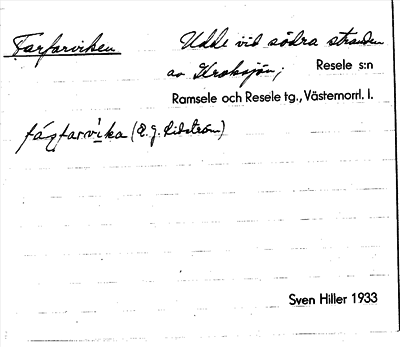 Farfarviken Udde vid södra stranden
av Kroksjön; Resele s:n
Ramsele och Resele tg., Västernorrl. l.
fárfarvika (E. J. Lidström)
Sven Hiller 1933